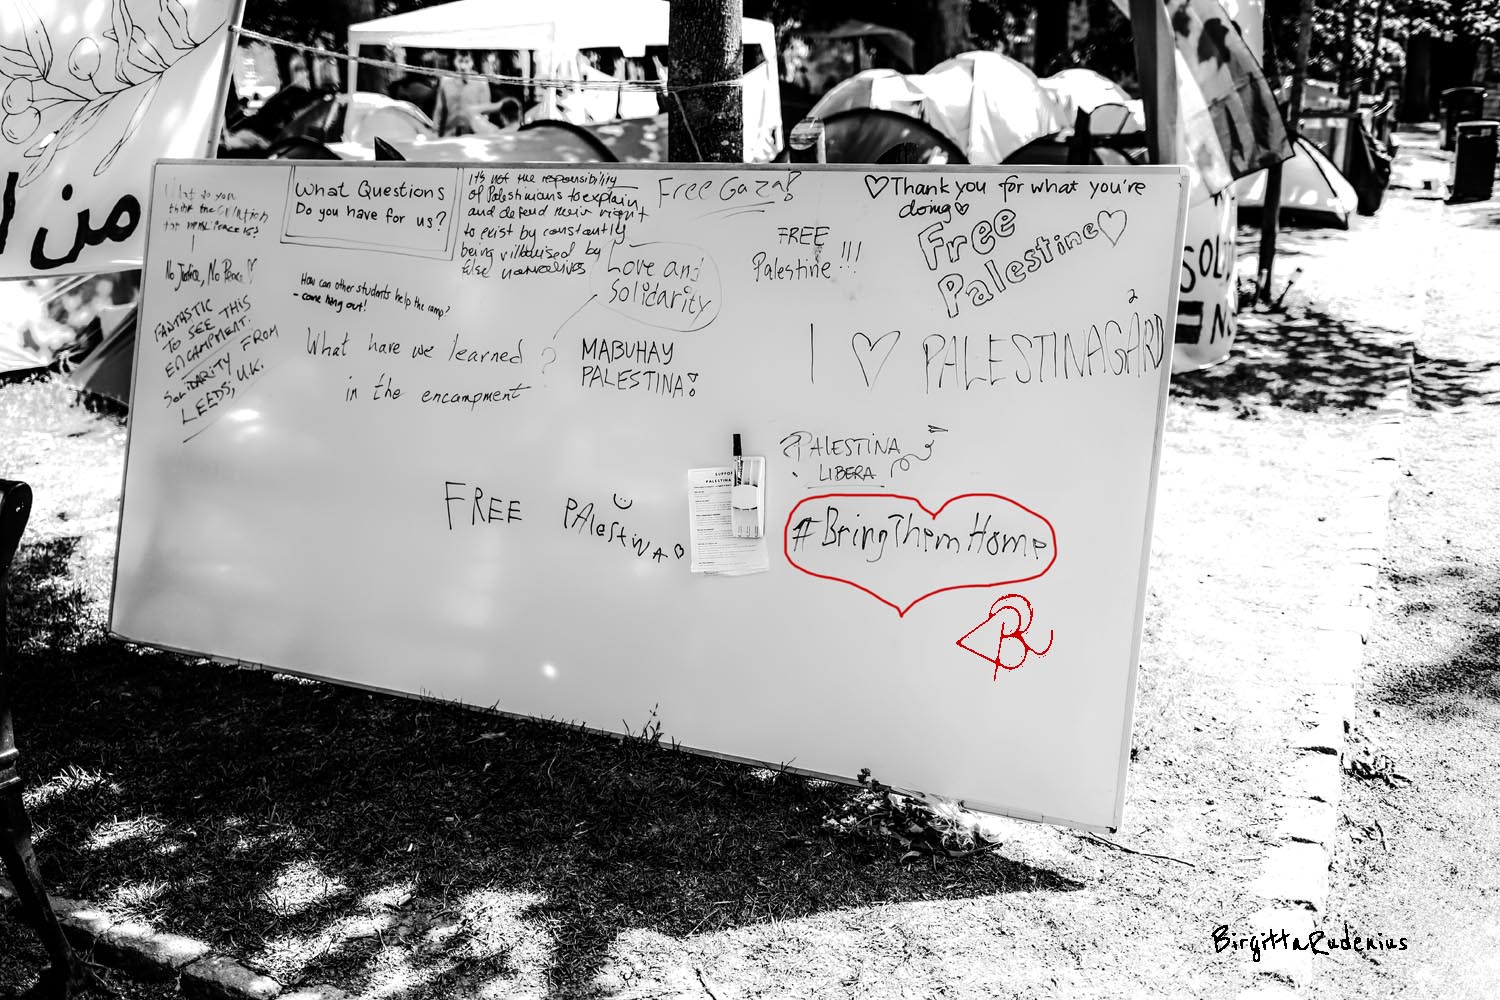 What do you
think the
for
No Justice, No Peace!
FANTASTIC
TO SEE THIS
ENCAMPMENT.
SOLIDARITY FROM
LEEDS, U.K.
What Questions
Do you have for us?
How can other students help the camp?
- come hang out!
What have we learned ?
in the encampment
It's not the responsibility
of Palestinians to explain
and defend their right
to exist by constantly
being villainised by
false narratives
Love and
Solidarity
Free Gaza!
FREE
Palestine!!!
MABUHAY
PALESTINA!
♡Thank you for what you're
doing♡
Free
Palestine♡
2
I ♡ PALESTINAGÅRD
PALESTINA
LIBERA
FREE PAlestinA ♡
SUPPO
PALESTINA
#BringThemHome
BR
من
SOL
=
BirgittaRudenius